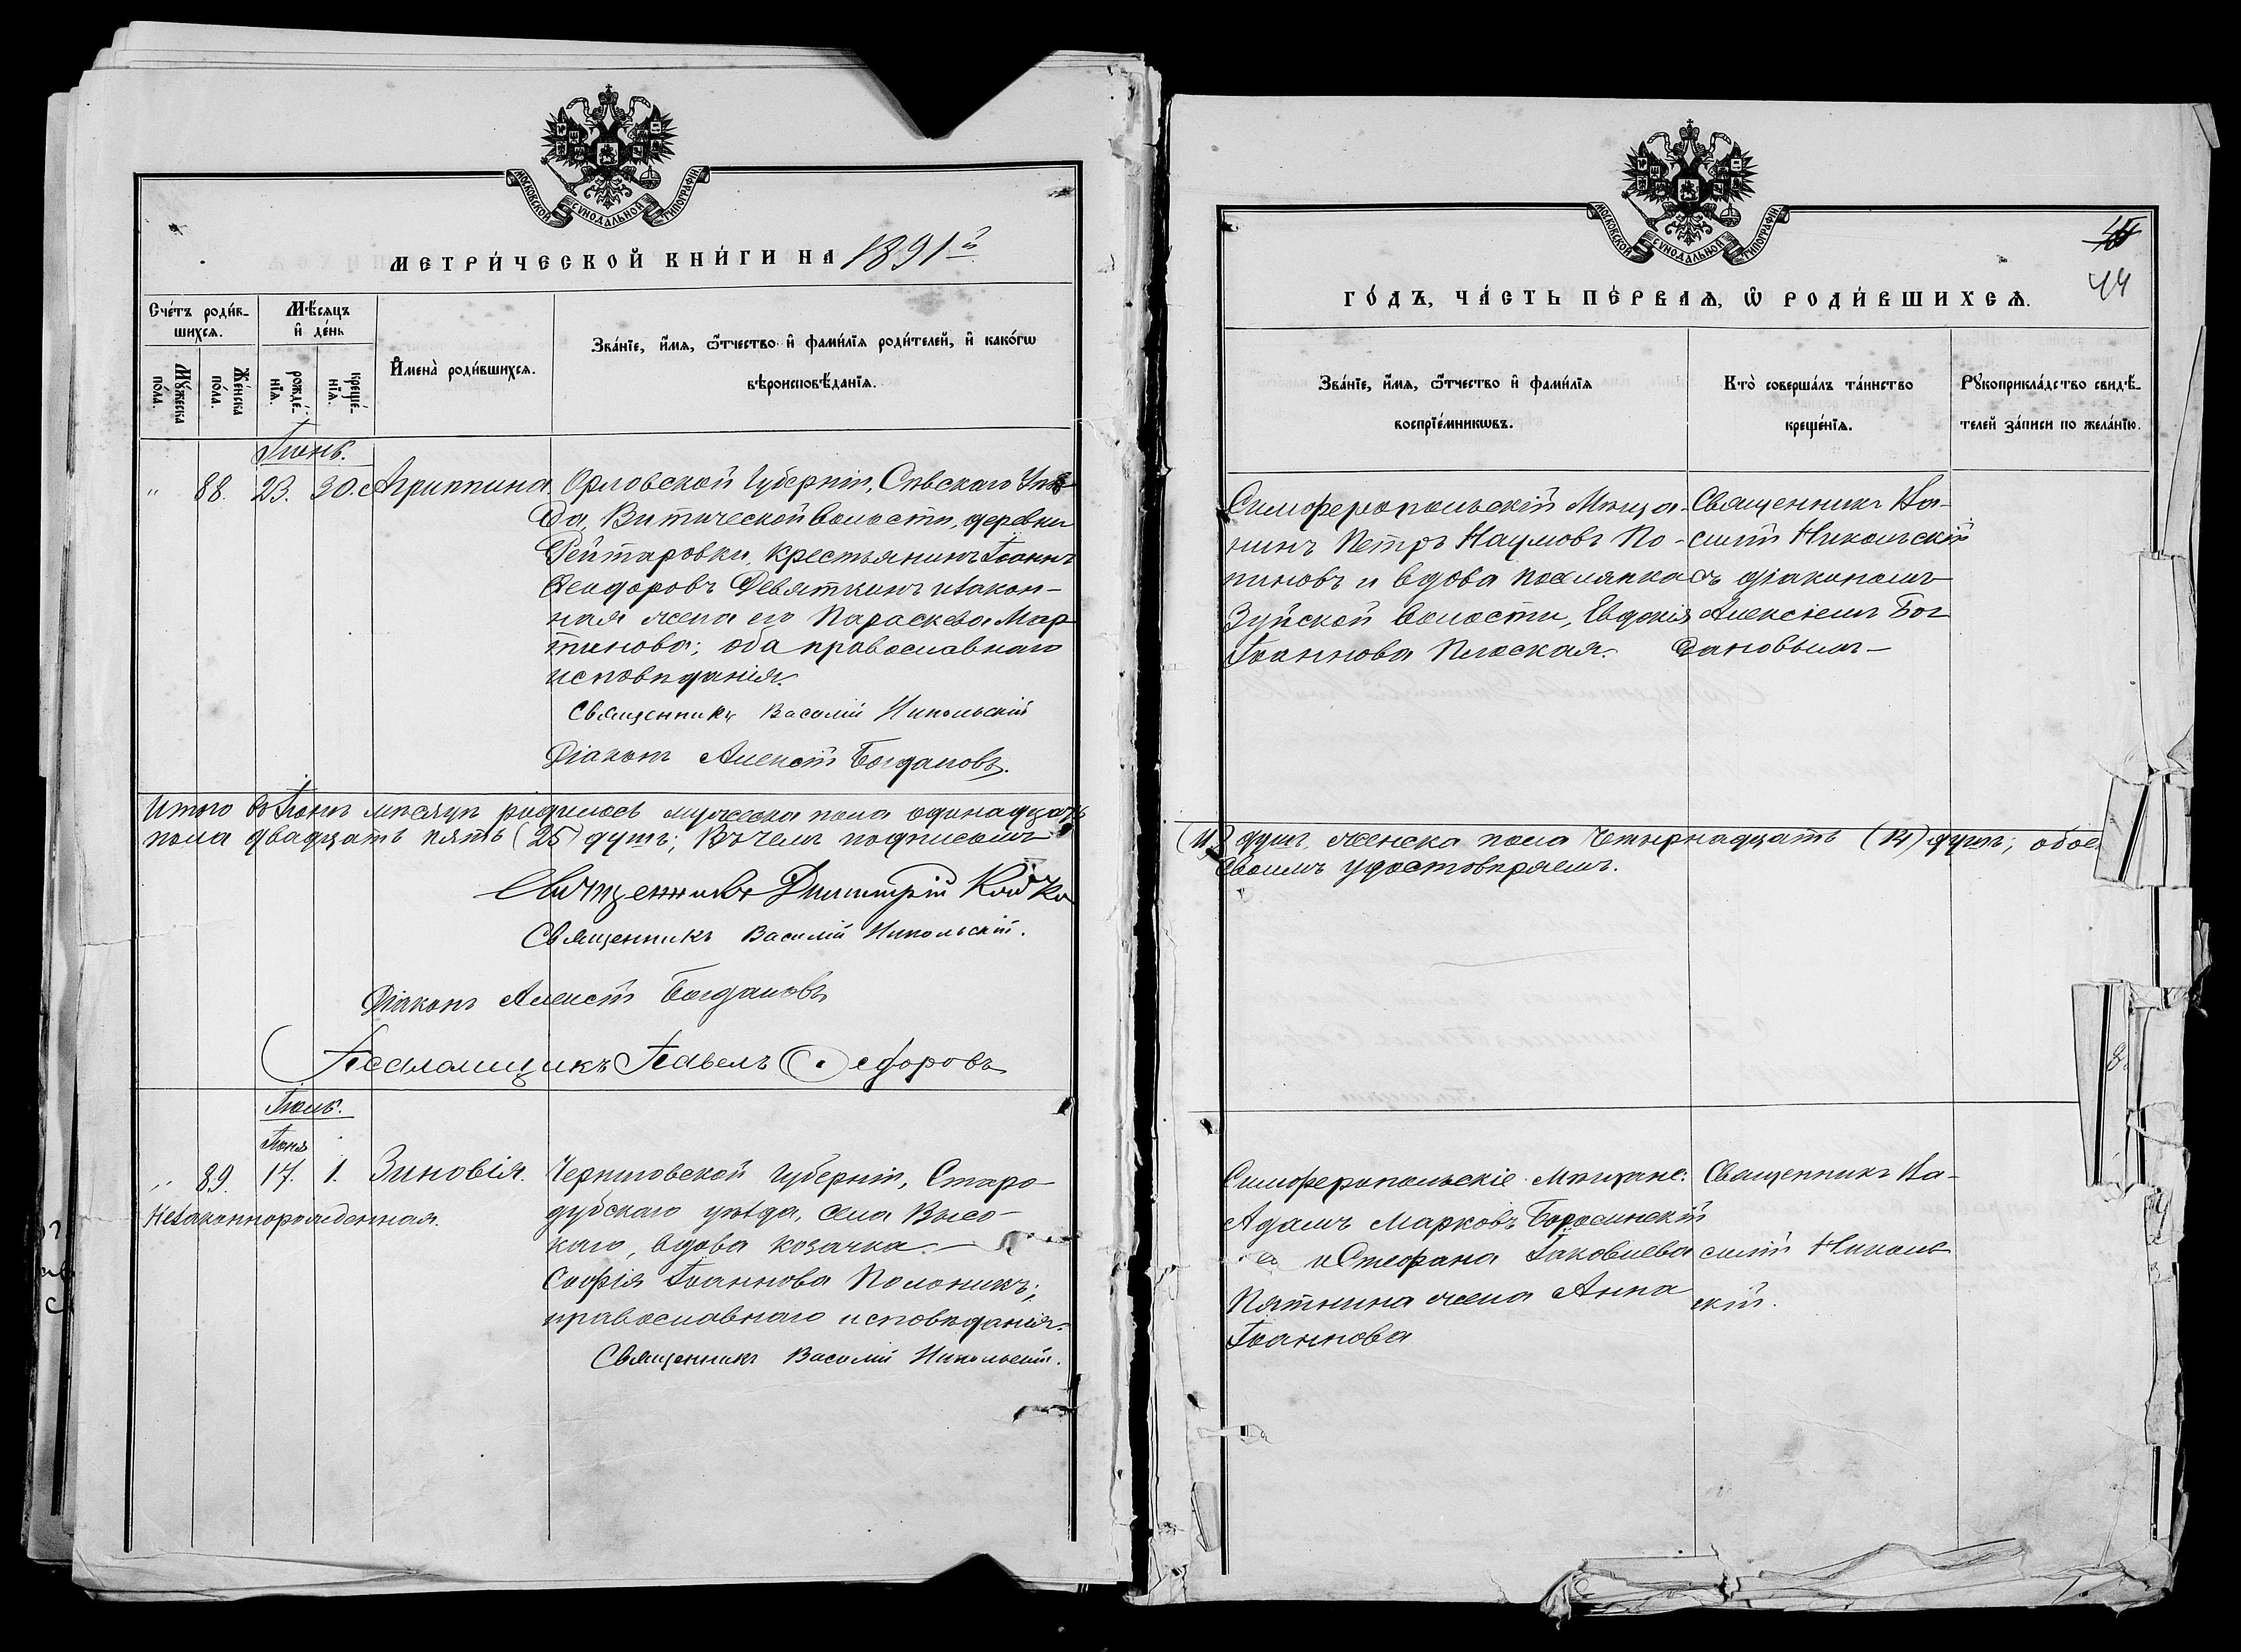 МОСКОВСКОЙ СУНОДАЛЬНОЙ ТИПОГРАФІИ
МЕТРИ́ЧЕСКОЙ КНИ́ГИ НА 1891й
Сче́тъ роди́в-
шихся.
Мѣ́сяцъ
и҆ де́нь
Мꙋ́жеска
по́ла.
Же́нска
по́ла.
рожде́-
нїѧ.
креще́-
нїѧ.
И҆мена̀ роди́вшихсѧ.
Зва́нїе, и҆́мѧ, ѻ҆́тчество и҆ фами́лїѧ роди́телей, и҆ како́гѡ
вѣроисповѣ́данїѧ.
Іюнь.
" 88. 23. 30. Агриппина.
Орловской Губерніи, Сѣвскаго Уѣз
да, Витической волости, деревни
Рейтаровки, крестьянинъ Іоаннъ
Ѳеодоровъ Девяткинъ и закон-
ная жена его Параскева Мар
тинова; оба православнаго
исповѣданія.
Священникъ Василій Никольскій
Діаконъ Алексій Богдановъ.
Итого въ Іюнѣ мѣсяцѣ родилось мужеска пола одинадцать
пола двадцать пять (25) душъ; Въ чемъ подписомъ
Священникъ Димитрій Койко
Священникъ Василій Никольскій.
Діаконъ Алексій Богдановъ
Псаломщикъ Павелъ Ѳедоровъ
Іюль.
Іюня
" 89. 17. 1. Зиновія.
Незаконнорожденная.
Черниговской Губерніи, Старо-
дубскаго уѣзда, села Высо-
каго, вдова козачка
Софія Іоаннова Полоникъ;
православнаго исповѣданія.
Священникъ Василій Никольскій.
МОСКОВСКОЙ СУНОДАЛЬНОЙ ТИПОГРАФІИ
44
ГО́ДЪ, ЧА́СТЬ ПЕ́РВАѦ, Ѡ҆ РОДИ́ВШИХСѦ.
Зва́нїе, и҆́мѧ, ѻ҆́тчество и҆ фами́лїѧ
воспрїе́мникѡвъ.
Кто̀ соверша́лъ та́инство
креще́нїѧ.
Рꙋкоприкла́дство свидѣ́-
телей за́писи по жела́нїю.
Симферопольскій Мѣща-
нинъ Петръ Наумовъ По-
пиновъ и вдова поселянка
Зуйской волости, Евдокія
Іоаннова Плоская.
Священникъ Ва-
силій Никольскій
съ діакономъ
Алексіемъ Бог
дановымъ
(11) душъ, женска пола четырнадцать (14) душъ; обое
своимъ удостовѣряемъ.
Симферопольскіе Мѣщане:
Адамъ Марковъ Боросинскій
и Стефана Іаковлева
Пятнина жена Анна
Іоаннова
Священникъ Ва-
силій Николь
скій.